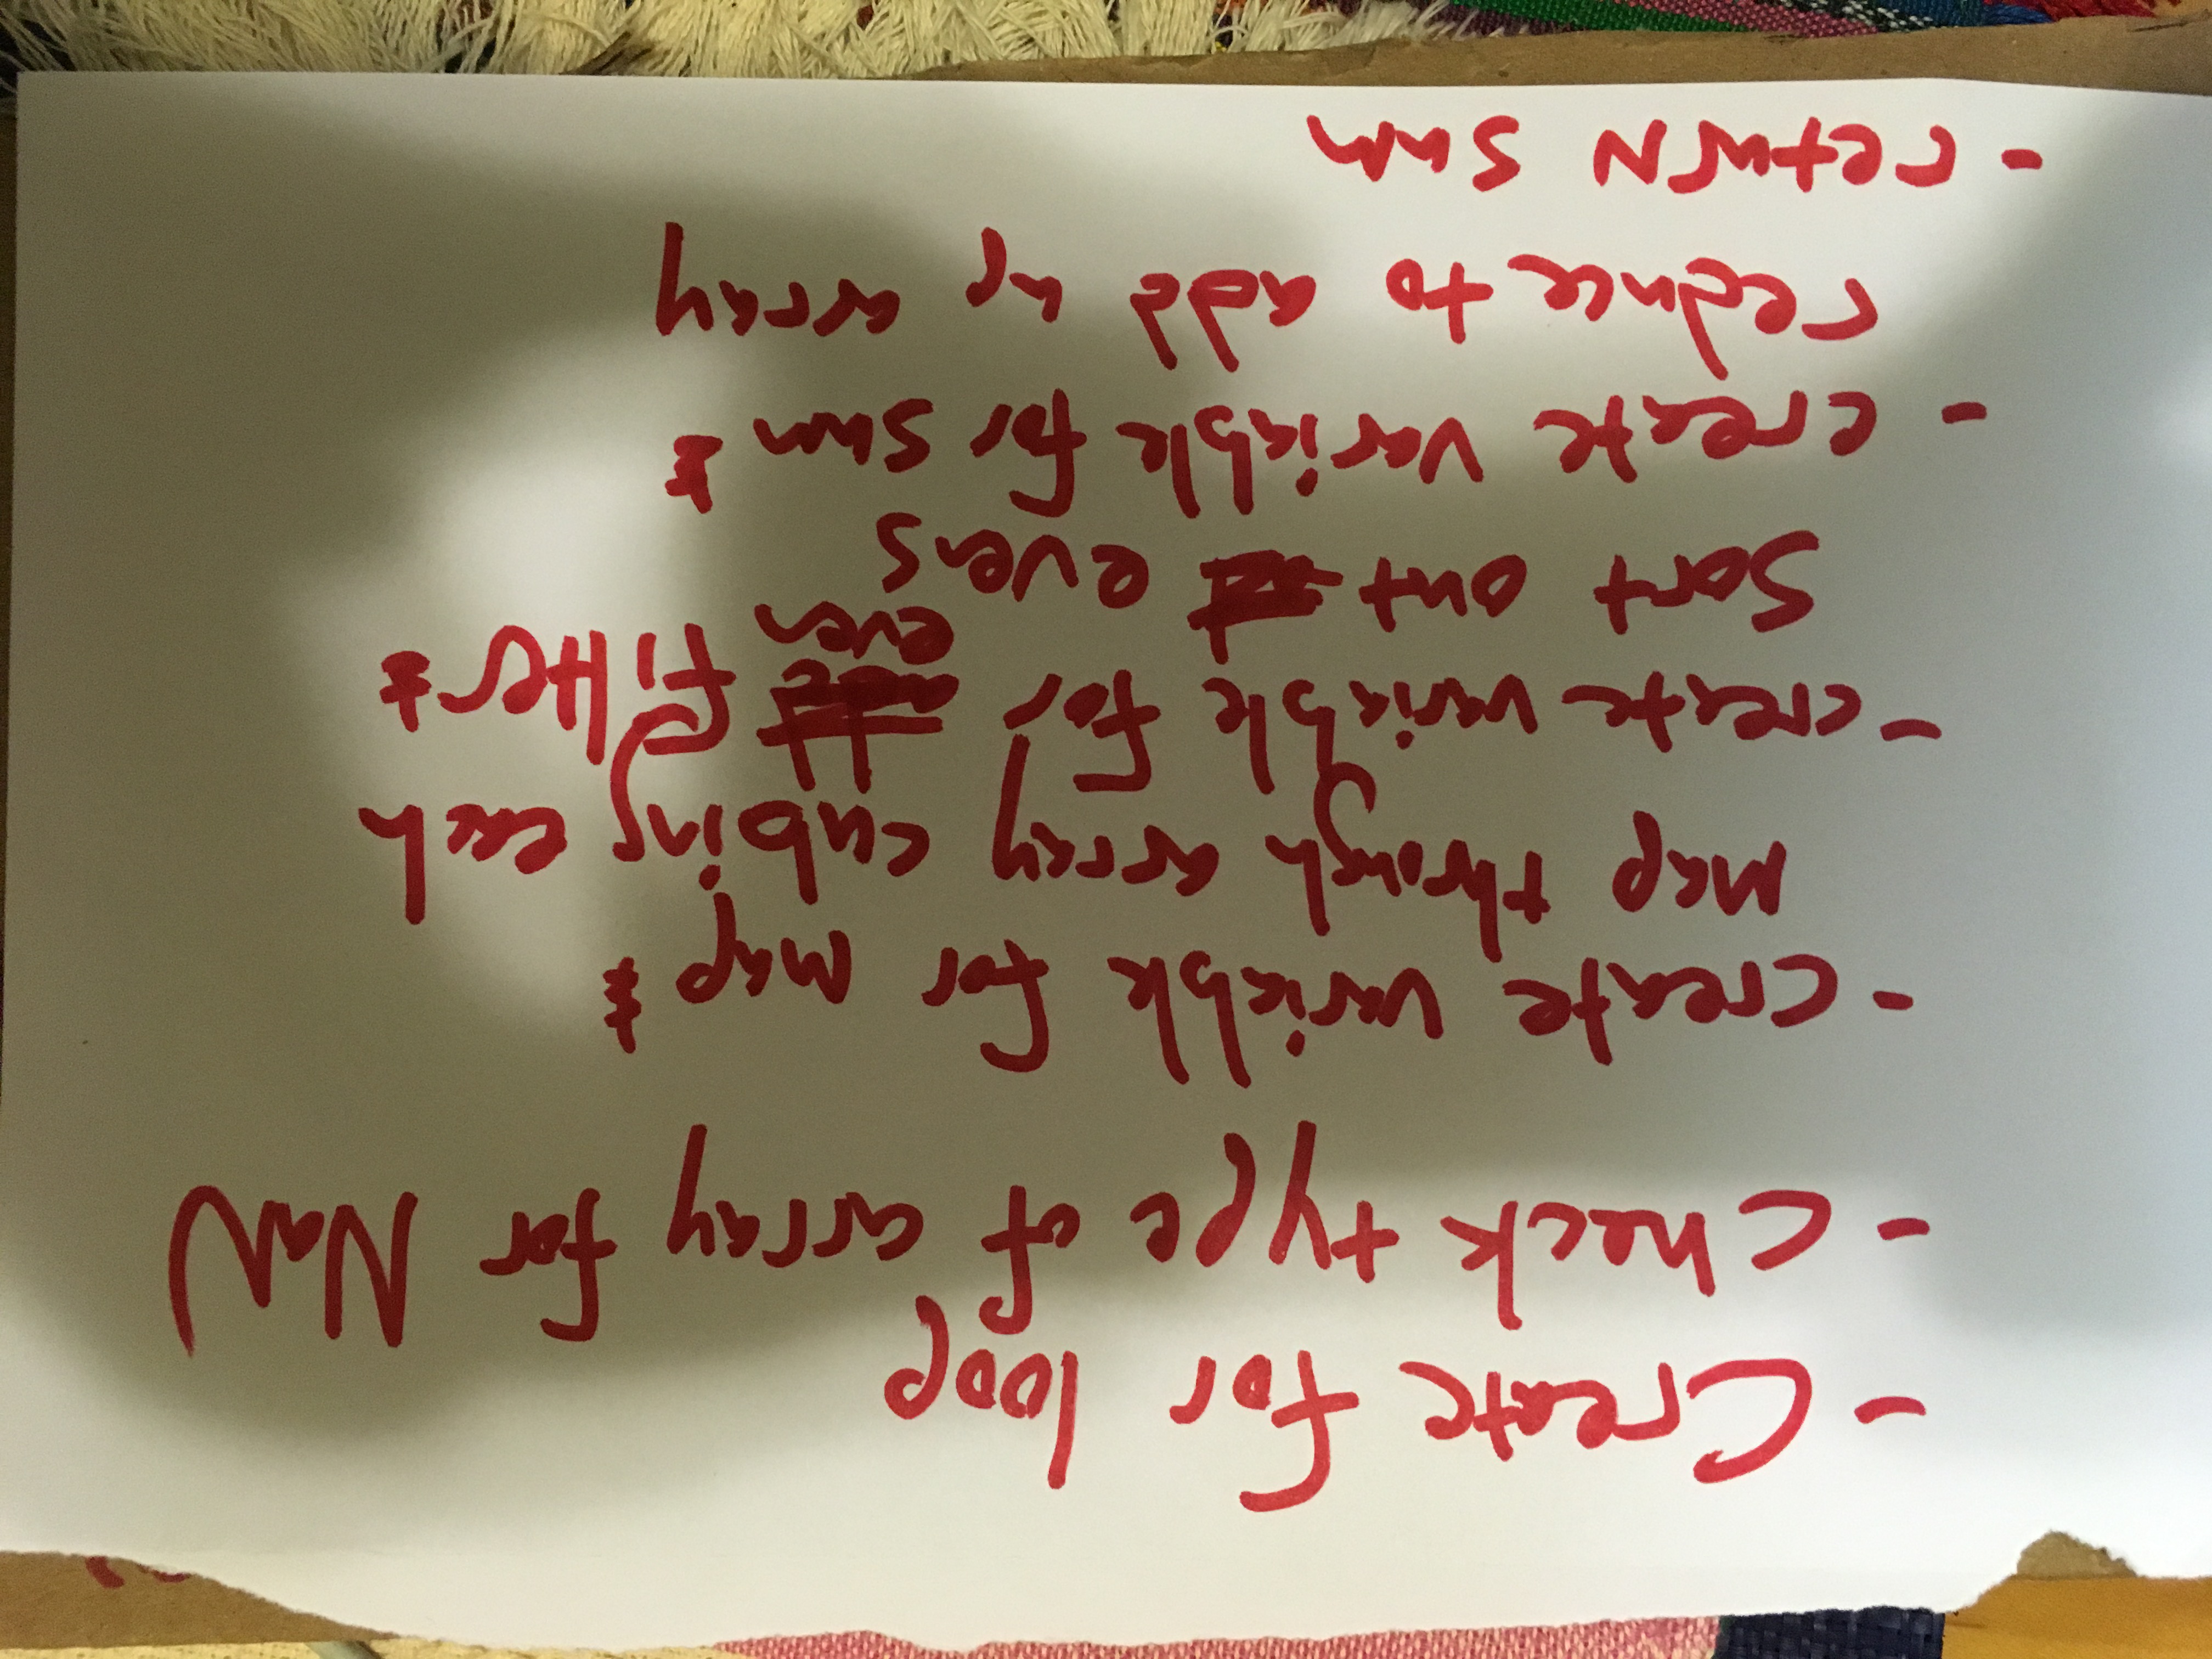 - Create for loop
- Check type of array for NaN
- create variable for map &
map through array cubing each
- create variable for even filter &
Sort out evens
- create variable for sum &
reduce to add up array
- return sum